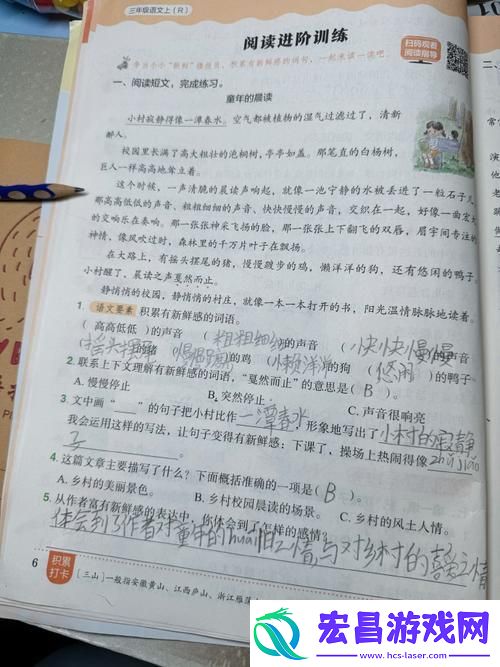 三年级语文上(R)
阅读进阶训练
扫码观看
阅读指导
争当小小“新鲜”播报员,积累有新鲜感的词句,一起来读一读吧。
一、阅读短文,完成练习。
童年的晨读
小村寂静得像一潭春水。空气都被植物的湿气过滤过了,清新
醉人。
校园里长满了高大粗壮的泡桐树,亭亭如盖。那笔直的白杨树,
巨人一样高高地耸立着。
这个时候,一声清脆的晨读声响起,就像一池宁静的水被丢进了一粒石子儿
那高高低低的声音、粗粗细细的声音、快快慢慢的声音,交织在一起,好像一曲宏大
的交响乐在奏响。那一张张神采飞扬的脸,那一张张上下翻飞的双唇,眉宇间专注的
神情,像风吹过时,森林里的千万片叶子在飘扬。
在大路上,有摇头摆尾的猪,慢慢踱步的鸡,懒洋洋的狗,还有悠闲的鸭子
小村醒了,晨读之声戛然而止。
静悄悄的校园,静悄悄的村庄,就像一本一本打开的书,阳光温情脉脉地读着。
1. 语文要素 积累有新鲜感的词语。
(高高低低)的声音 (粗粗细细)的声音 (快快慢慢)的声音
(摇头摆尾)的猪 的鸡 (懒洋洋)的狗 (悠闲)的鸭子
2. 联系上下文理解有新鲜感的词语,“戛然而止”的意思是( B )。
A. 慢慢停止 B. 突然停止 C. 声音很响亮
3. 文中画“____”的句子把小村比作一潭春水,形象地写出了小村的寂静
我会运用这样的写法,让句子变得有新鲜感:下课了,操场上热闹得像zhà jiao
子。
4. 这篇文章主要描写了什么?下面概括准确的一项是( B )。
A. 乡村的美丽景色。 B. 乡村校园晨读的场景。 C. 乡村的风土人情。
5. 从作者富有新鲜感的表达中,你体会到了怎样的感情?
体会到了作者对童年的huái旧之情,与对乡村的喜爱之情
6
积累
打卡
[三山]一般指安徽黄山、江西庐山、浙江雁荡
宏昌游戏网
www.hcs-laser.com